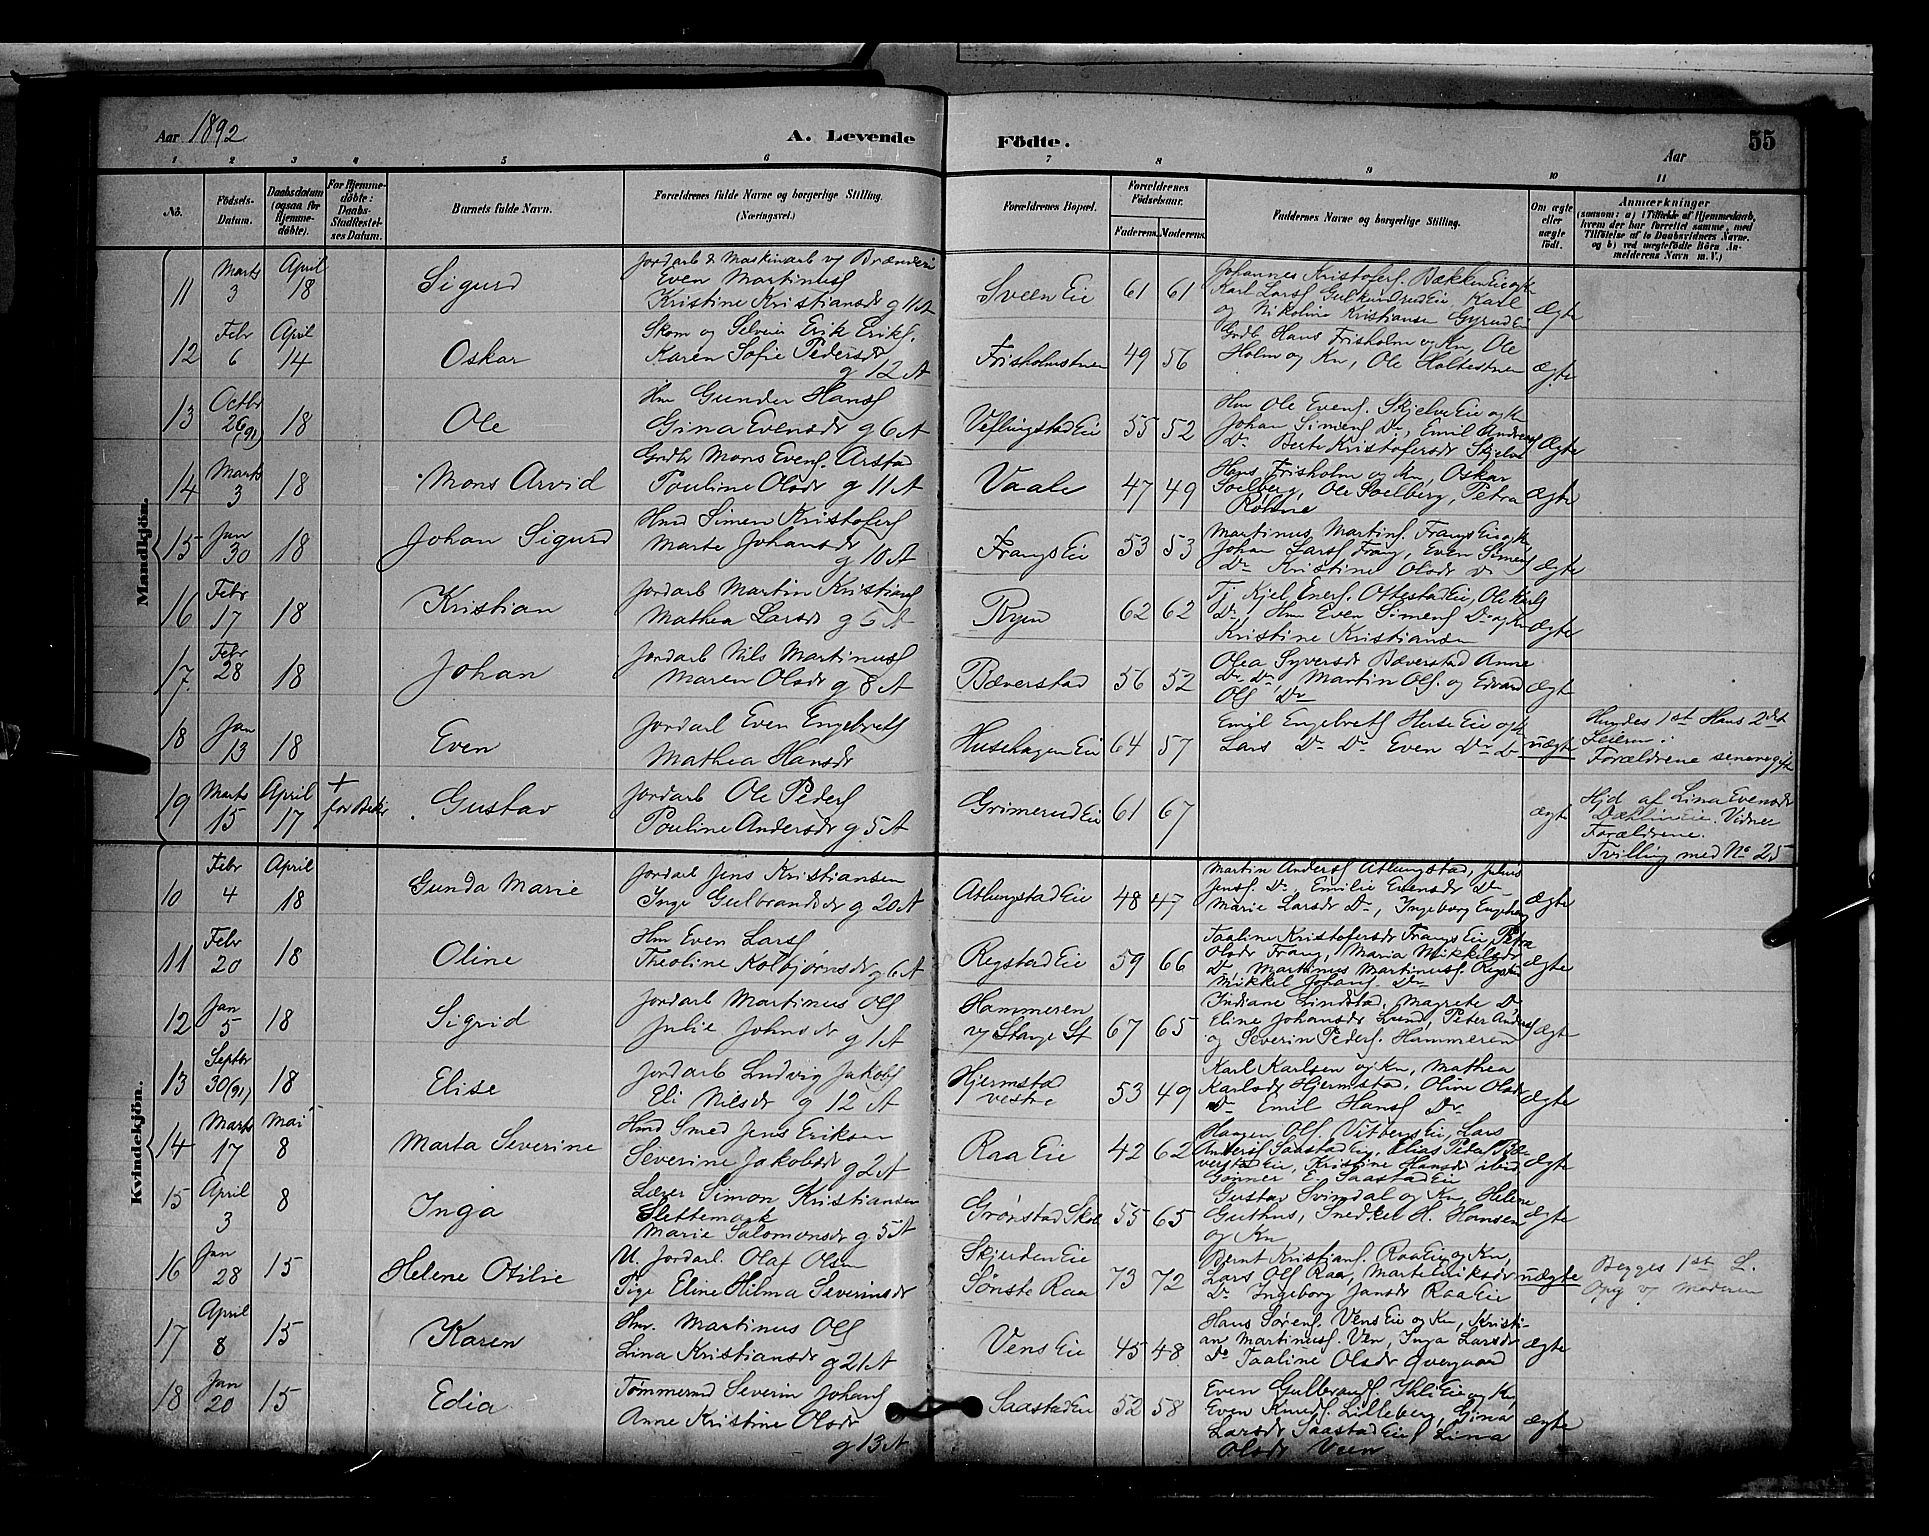 Aar 1892
A. Levende Födte.
55
Aar
1 2 3 4 5 6 7 8 9 10 11
No.
Födsels-Datum.
Daabsdatum (ogsaa for Hjemme-döbte).
For Hjemme-döbte: Daabs-Stadfæstel-ses Datum.
Barnets fulde Navn.
Forældrenes fulde Navne og borgerlige Stilling.
(Næringsvei.)
Forældrenes Bopæl.
Forældrenes Födselsaar.
Faderens. Moderens.
Faddernes Navne og borgerlige Stilling.
Om ægte eller uægte födt.
Anmærkninger
(saasom: a) i Tilfælde af Hjemmedaab,
hvem der har forrettet samme, med
Tilföielse af to Daabsvidners Navne,
og b) ved uægtefödte Börn An-
melderens Navn m. V.)
Mandkjön.
11 Marts 3 April 18 Sigurd
Jordarb & Maskinarb v/ Brænderi
Even Martinusf
Kristine Kristiansdr g 11 A
Sveen Eie 61 61
Johannes Kristofersf. Bækken Eie og K
Karl Larsf Gulkindrud Eie, Karl
og Nikoline Kristiansen Gyrud Eie
Ægte
12 Febr 6 April 14 Oskar
Skom og Selveier Erik Eriksf.
Karen Sofie Pedersdr
g 12 A
Frisholmstuen 49 56
Grdb Hans Frisholm og Kn, Ole
Holm og Kn, Ole Holtestuen
Ægte
13 Octbr 26 (91) 18 Ole
Hm Gunder Hansf
Gina Evensdr g 6 A
Veflingstad Eie 55 52
Hm Ole Evensf. Skjelve Eie og K
Johan Simensf Do, Emil Andreas
Do Berte Kristofersdr Skjelve
Ægte
14 Marts 3 18 Mons Arvid
Grdbr Mons Evensf. Arstad
Pouline Olsdr g 11 A
Vaale 47 49
Hans Frisholm og Kn, Oskar
Soelberg, Ole Soelberg, Petra
Rohne
Ægte
15 Jan 30 18 Johan Sigurd
Hmd Simen Kristofersf
Marte Johansdr
g 10 A
Frangs Eie 53 53
Martinus Martinsf. Frangs Eie og K
Johan Larsf Frang, Even Simensf
Do Kristine Olsdr Do
Ægte
16 Febr 17 18 Kristian
Jordarb Martin Kristiansf
Mathea Larsdr g 5 A
Ryen 62 62
Tj. Kjel Enersf. Ottestad Eie, Ole Karlsf
Do, Hm Even Simensf Do og Kn
Kristine Kristiansen
Ægte
17. Febr 28 18 Johan
Jordarb Nils Martinusf
Maren Olsdr g 8 A
Bæverstad 56 52
Olea Syversdr Bæverstad Anne
Do Do Martin Olsf. og Edvard
Olsf Do
Ægte
18 Jan 13 18 Even
Jordarb Even Engebretsf
Mathea Hansdr
Husehagen Eie 64 57
Emil Engebretsf Huse Eie og K
Lars Do Do Even Do Do
uægte
Hendes 1st Hans 2det
Leierm:
Forældrene senere gifte
19 Marts 15 April 17 + før Bekr Gustav
Jordarb Ole Pedersf
Pouline Andersdr g 5 A
Grimerud Eie 61 67
ægte
Hjd af Lina Evensdr
Dætlin Eie. Vidner
Forældrene.
Tvilling med No 25
Kvindekjön.
10 Febr 4 April 18 Gunda Marie
Jordarb Jens Kristiansen
Inge Gulbrandsdr g 20 A
Atlungstad Eie 48 47
Martin Andersf Atlungstad, Julius
Jensf. Do, Emilie Evensdr Do
Marie Larsdr Do, Ingeborg Engehaug
Ægte
11 Febr 20 18 Oline
Hm Even Larsf
Theoline Kolbjørnsdr g 6 A
Rygstad Eie 59 66
Taaline Kristofersdr Frangs Eie, Petra
Olsdr Frang, Maria Mikkelsdr
Do, Martinus Martinusf. Rygstad
Mikkel Johansf. Do
ægte
12 Jan 5 18 Sigrid
Jordarb Martinus Olsf
Julie Johnsdr g 1 A
Hammeren
v/ Stange St 67 65
Indiane Lindstad, Magrete Do
Eline Johansdr Lund, Peter Andersf
og Severin Pedersf. Hammeren
Ægte
13 Septbr 30 (91) 18 Elise
Jordarb Ludvig Jakobsf
Eli Nilsdr g 12 A
Hjermstad
vestre 53 49
Karl Karlsen og Kn, Mathea
Karlsdr Hjermstad, Oline Olsdr
Do Emil Hansf Do
Ægte
14 Marts 17 Mai 8 Marta Severine
Hmd Smed Jens Eriksen
Severine Jakobsdr g 2 A
Raa Eie 42 62
Hagen Olsf. Vitberg Eie, Lars
Andersf Saastad Eie, Elias Pedersf Bæ-
verstad Eie, Kristine Hansdr ibid
Gønner E. Saastad Eie
Ægte
15 April 3 8 Inga
Lærer Simon Kristiansen
Slettemark
Marie Salomonsdr g 5 A
Grønstad Skole 55 65
Gustav Svindal og Kn, Helene
Guthus, Snedker H. Hansen
og Kn
Ægte
16 Jan 28 15 Helene Otilie
U. Jordarb. Olaf Olsen
Pige Eline Hilma Severinsdr
Skjerden Eie
Sønste Raa 73 72
Bernt Kristiansf. Raa Eie og Kn,
Lars Olsf Raa, Marte Eriksdr
Do Ingeborg Jansdr Raa Eie
uægte
Begges 1st L.
Opg v/ Moderen
17 April 8 15 Karen
Hm. Martinus Olsf
Lina Kristiansdr g 21 A
Vens Eie 45 48
Hans Sørensf. Vens Eie og Kn, Kristi-
an Martinusf. Ven, Inga Larsdr
Do Taaline Olsdr Overgaard
Ægte
18 Jan 20 15 Edia
Tømmermd Severin Johansf
Anne Kristine Olsdr
g 13 A
Saastad Eie 52 58
Even Gulbrandsf. Ihli Eie og Kn,
Even Knudsf. Lilleberg, Gina
Larsdr Saastad Eie, Lina
Olsdr Veen
Ægte